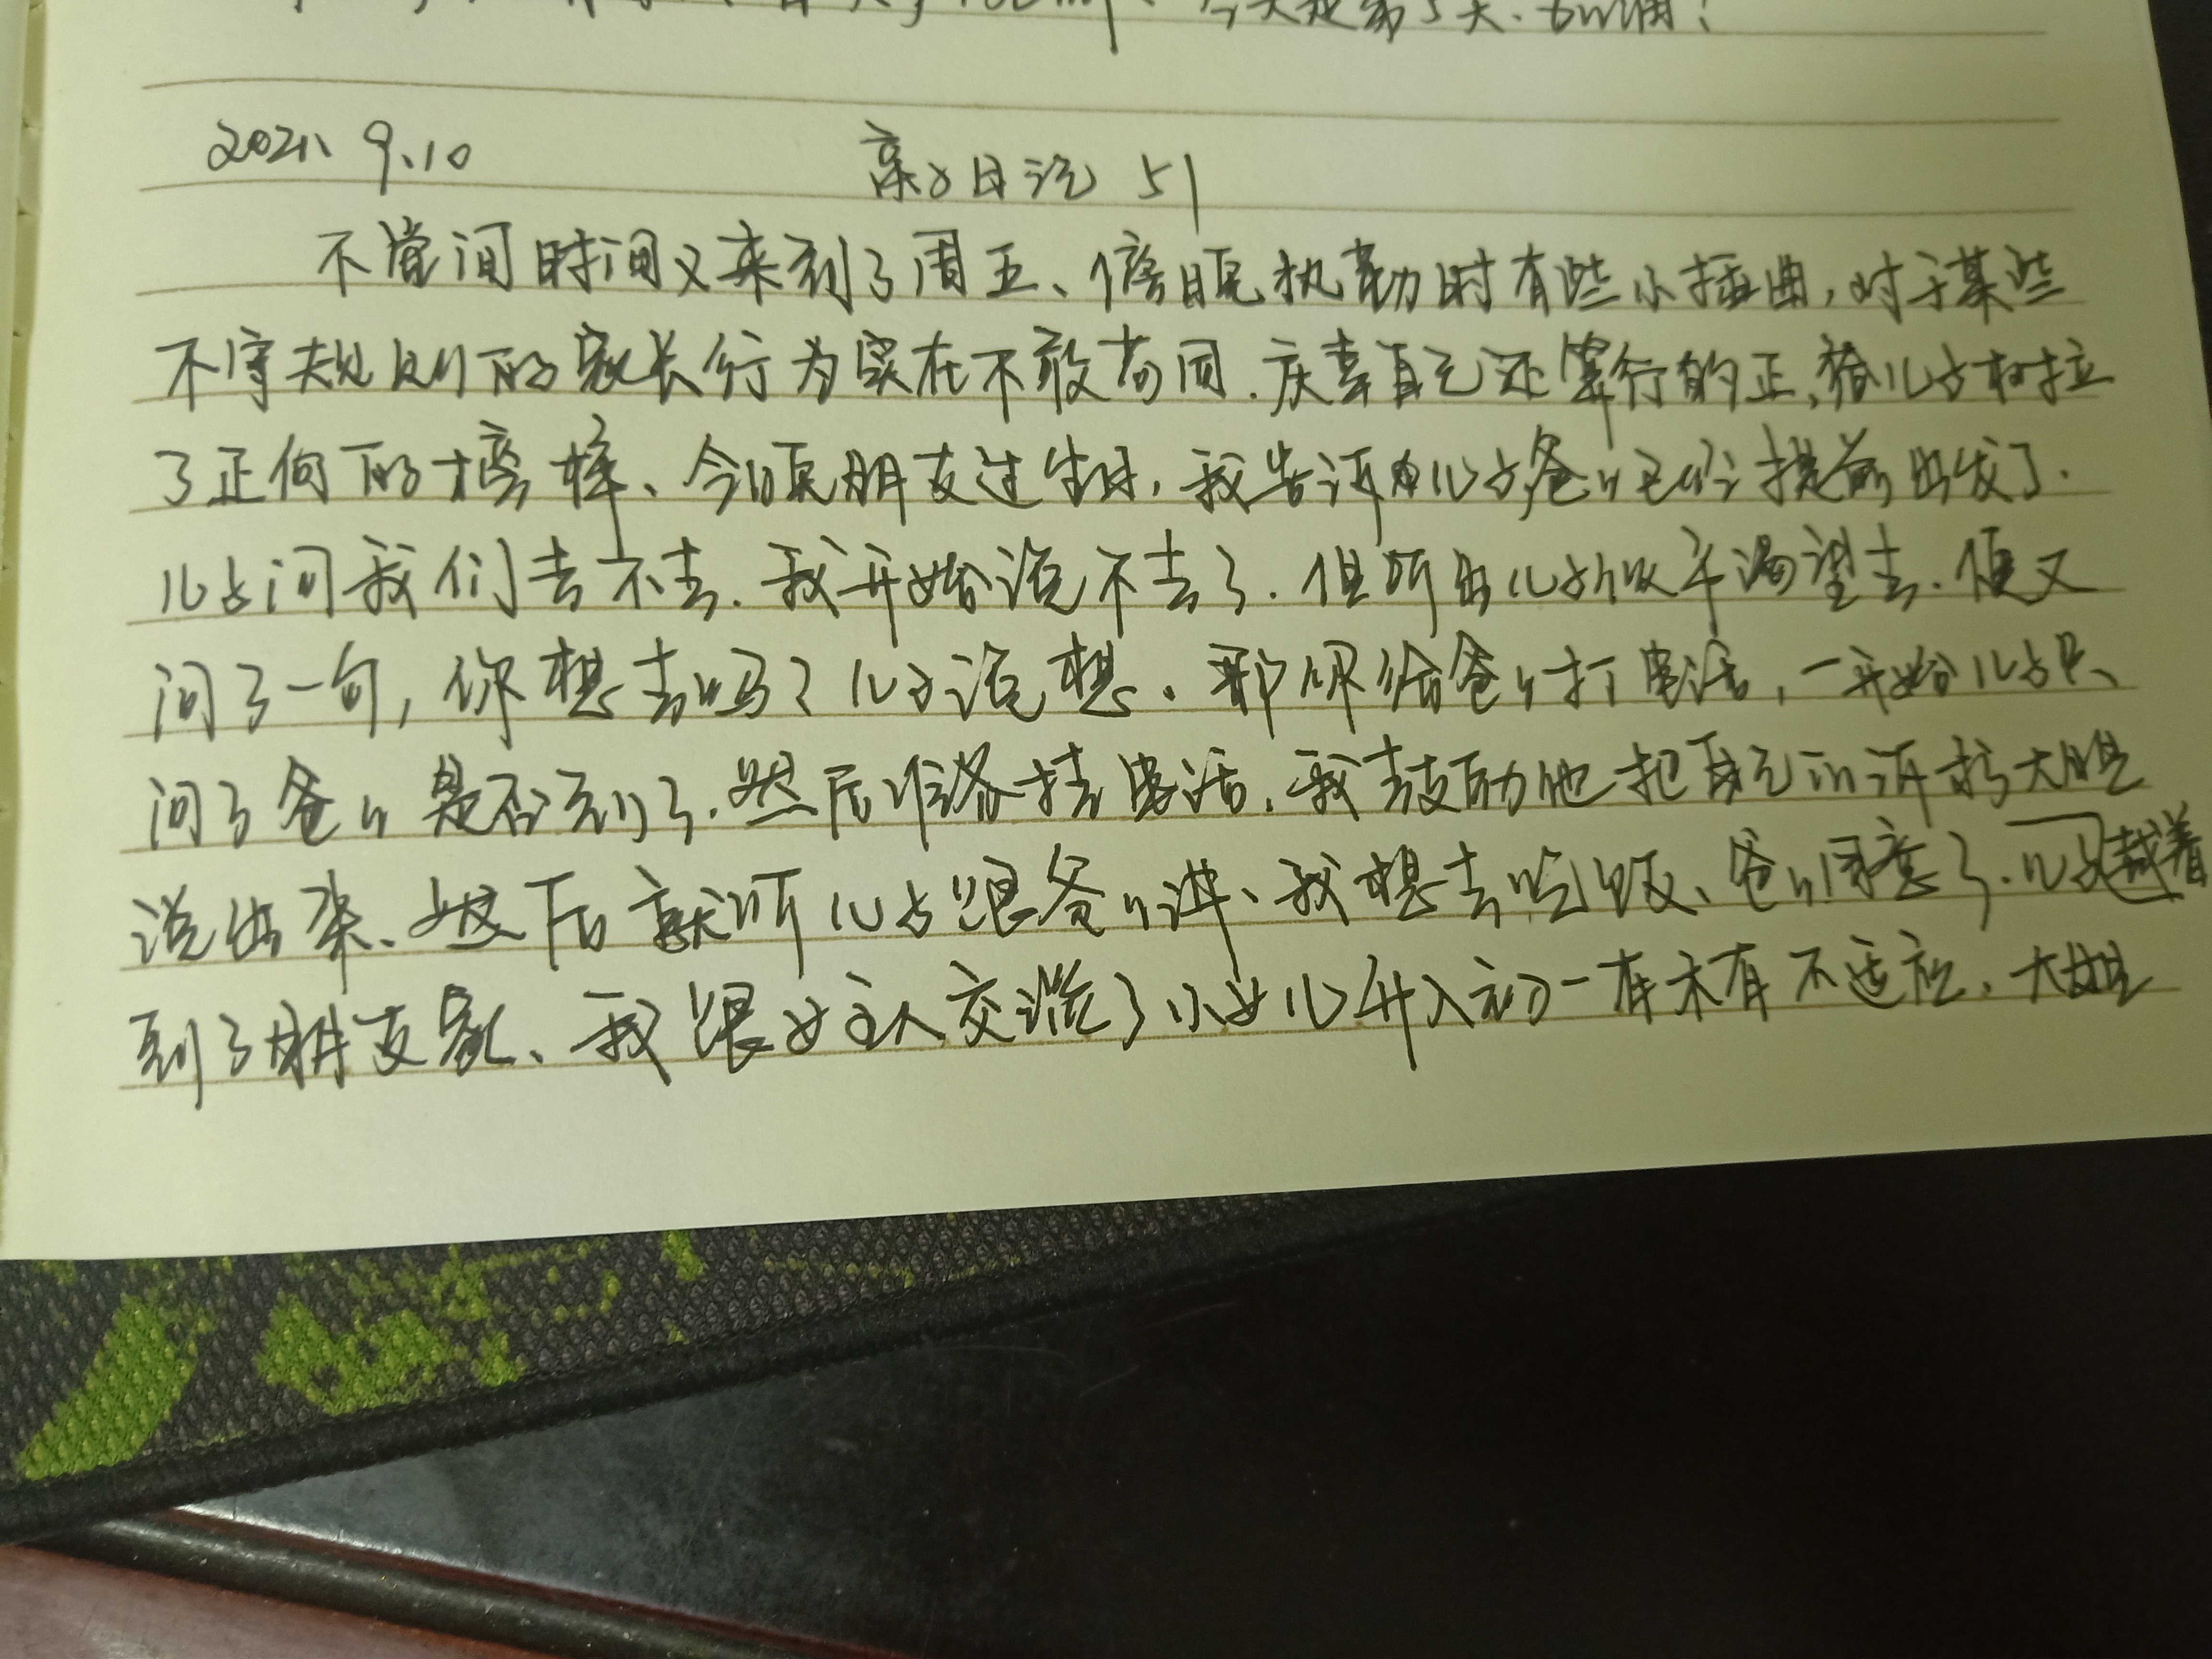 今天是第5天、加油!
2021、9、10 亲子日记 51
不觉间时间又来到了周五、傍晚执勤时有些小插曲,对于某些
不守规则的家长行为实在不敢苟同.庆幸自己还算行的正,给儿子树立
了正向的榜样、今晚朋友过生日,我告诉儿子,爸爸已经提前出发了.
儿子问我们去不去.我开始说不去了.但听出儿子似乎渴望去.便又
问了一句,你想去吗?儿子说想、那你给爸爸打电话,一开始儿子只、
问了爸爸是否到了.然后准备挂电话.我鼓励他把自己的诉求大胆
说出来、然后就听儿子跟爸爸讲、我想去吃饭、爸爸同意了.儿子
到了朋友家、我跟女主人交流了小女儿升入初一有未有不适应、大姐